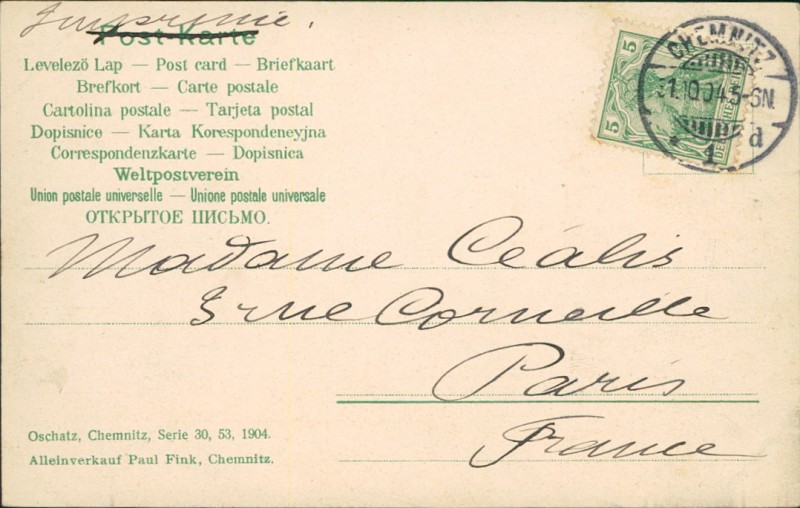 Imprimé.
Post-Karte
Levelező Lap — Post card — Briefkaart
Brefkort — Carte postale
Cartolina postale — Tarjeta postal
Dopisnice — Karta Korespondeneyjna
Correspondenzkarte — Dopisnica
Weltpostverein
Union postale universelle — Unione postale universale
ОТКРЫТОЕ ПИСЬМО.
5
5
CHEMNITZ
1.10.04.5-6N.
1 d
Madame Céalis
3 rue Corneille
Paris
France
Oschatz, Chemnitz, Serie 30, 53, 1904.
Alleinverkauf Paul Fink, Chemnitz.